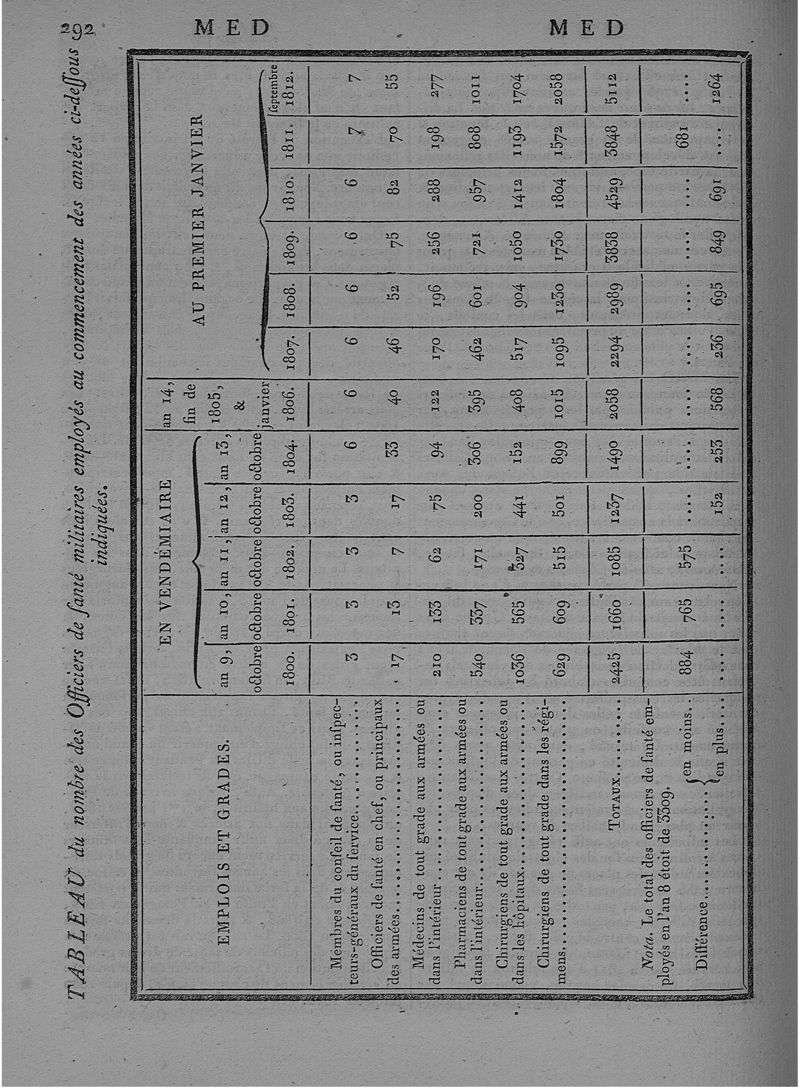 292 MED MED
TABLEAU du nombre des Officiers de ſanté militaires employés au commencement des années ci-deſſous
indiquées.
EMPLOIS ET GRADES.
EN VENDÉMIAIRE
an 14,
fin de
1805,
&
janvier
1806.
AU PREMIER JANVIER
an 9, an 10, an 11, an 12, an 13,
octobre octobre octobre octobre octobre
1800. 1801. 1802. 1803. 1804.
1807. 1808. 1809. 1810. 1811. ſeptembre
1812.
Membres du conſeil de ſanté, ou inſpec-
teurs-généraux du ſervice.............. 3 3 3 3 6 6 6 6 6 6 7 7
Officiers de ſanté en chef, ou principaux
des armées........................ 17 13 7 17 33 40 46 52 75 82 70 55
Médecins de tout grade aux armées ou
dans l'intérieur.................... 210 133 62 75 94 122 170 196 256 288 198 277
Pharmaciens de tout grade aux armées ou
dans l'intérieur.................... 540 337 171 200 306 395 462 601 721 957 808 1011
Chirurgiens de tout grade aux armées ou
dans les hôpitaux.................. 1036 565 327 441 152 408 517 904 1050 1412 1193 1704
Chirurgiens de tout grade dans les régi-
mens............................ 629 609 515 501 899 1015 1095 1230 1730 1804 1572 2058
TOTAUX.......... 2425 1660 1085 1237 1490 2058 2294 2989 3838 4529 3848 5112
Nota. Le total des officiers de ſanté em-
ployés en l'an 8 étoit de 3309.
Différence..............
en moins... 884 765 575 .... .... .... .... .... .... .... 681 ....
en plus.... .... .... .... 152 253 568 236 695 849 691 .... 1264